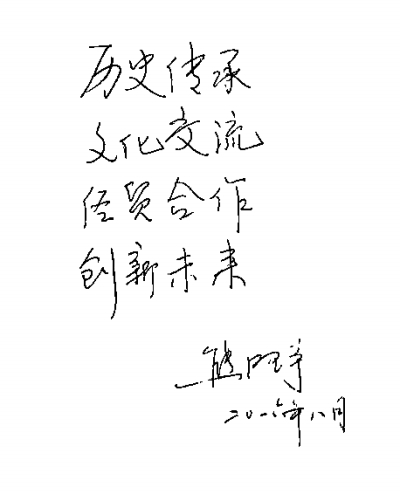 历史传承
文化交流
经贸合作
创新未来
二〇一六年八月